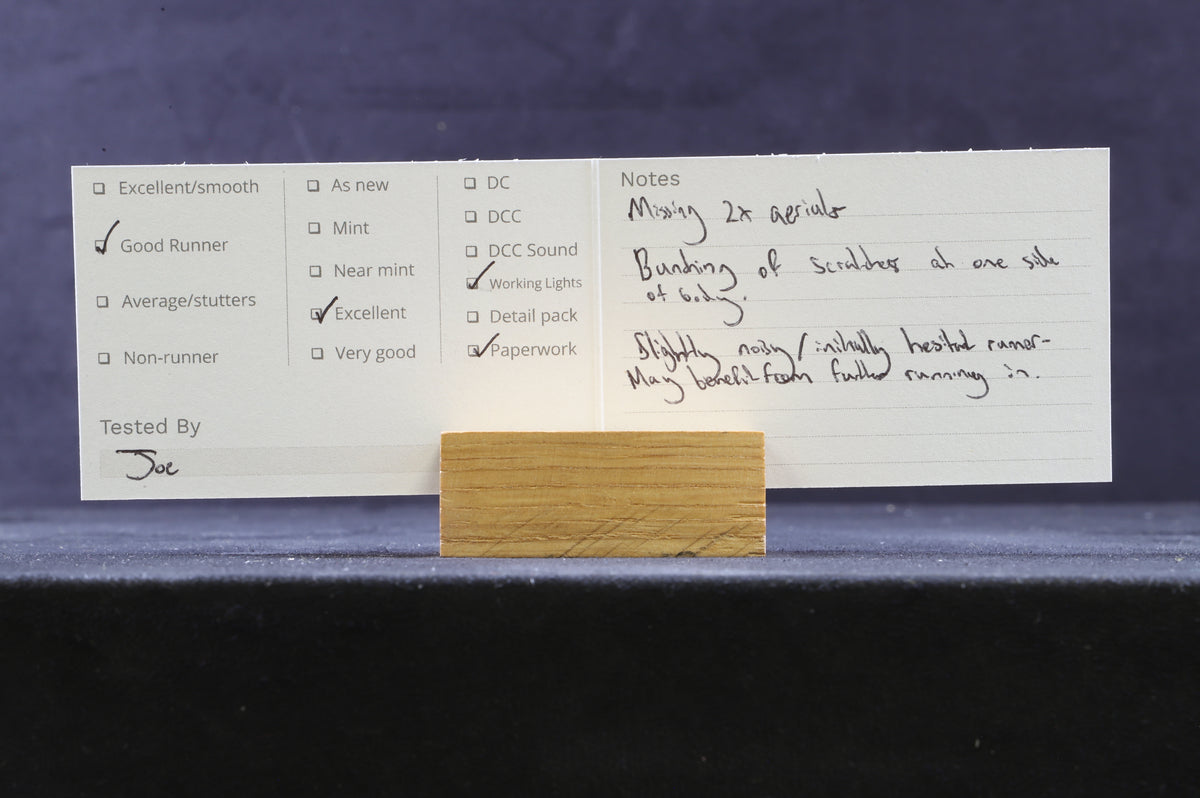 Excellent/smooth
Good Runner
Average/stutters
Non-runner
Tested By
Joe
As new
Mint
Near mint
Excellent
Very good
DC
DCC
DCC Sound
Working Lights
Detail pack
Paperwork
Notes
Missing 2x aerials
Bunching of scratches at one side
of body.
Slightly noisy/initially hesitant runner-
May benefit from further running in.